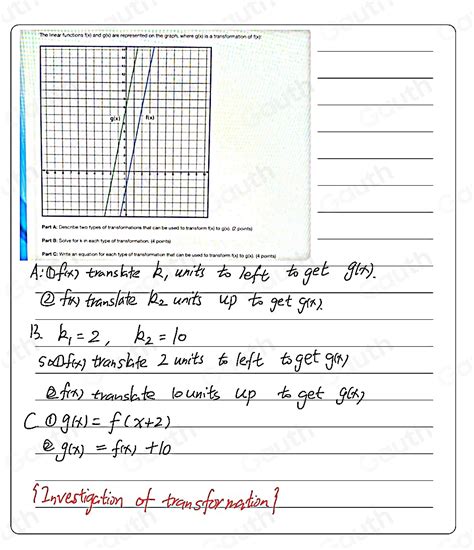 The linear functions f(x) and g(x) are represented on the graph, where g(x) is a transformation of f(x):
g(x) f(x)
Part A: Describe two types of transformations that can be used to transform f(x) to g(x). (2 points)
Part B: Solve for k in each type of transformation. (4 points)
Part C: Write an equation for each type of transformation that can be used to transform f(x) to g(x). (4 points)
A: ① f(x) translate k₁ units to left to get g(x).
② f(x) translate k₂ units up to get g(x).
B. k₁ = 2, k₂ = 10
So ① f(x) translate 2 units to left to get g(x)
② f(x) translate 10 units up to get g(x)
C. ① g(x) = f(x+2)
② g(x) = f(x) + 10
{Investigation of transformation}